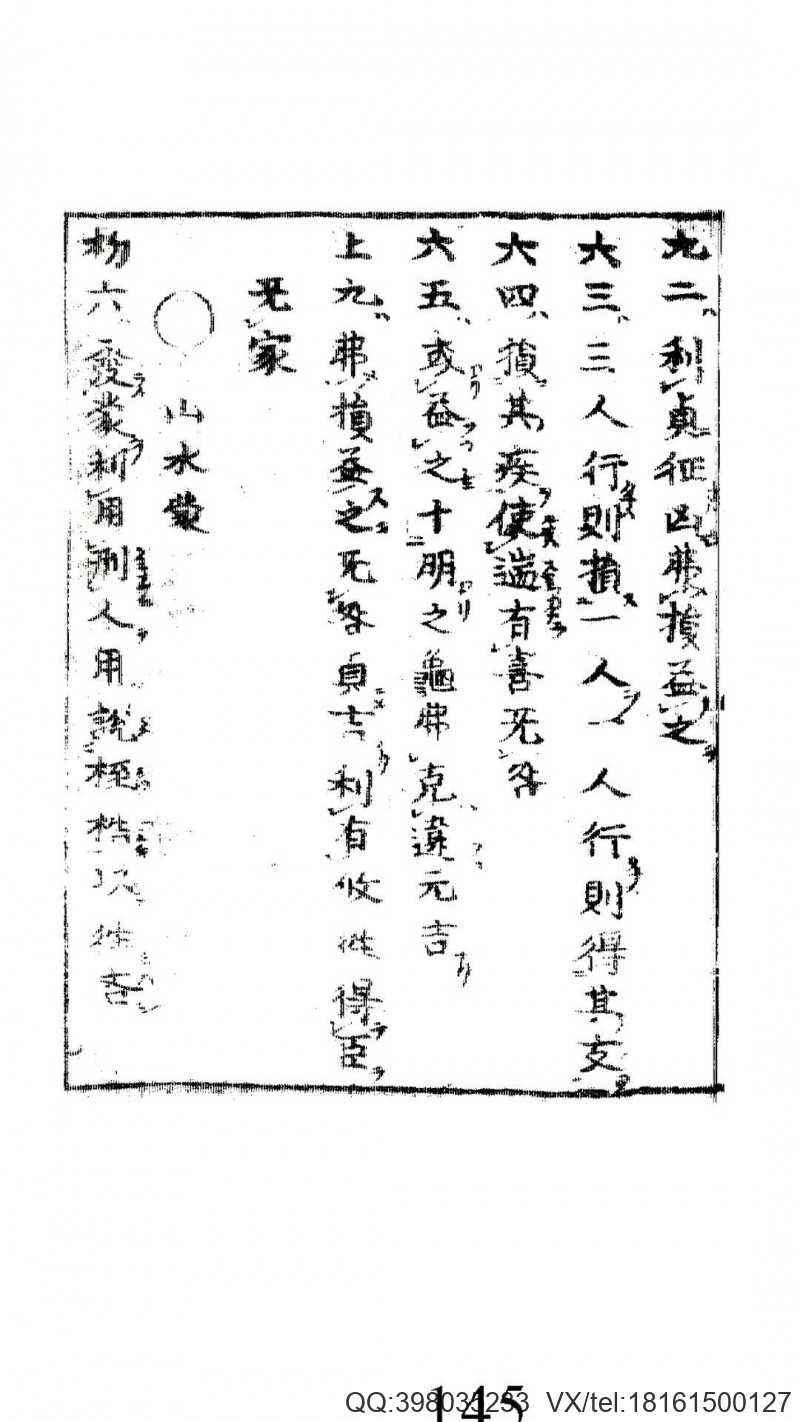 九二利貞征凶弗損益之
六三三人行則損一人一人行則得其友
六四損其疾使遄有喜无咎
六五或益之十朋之龜弗克違元吉
上九弗損益之无咎貞吉利有攸往得臣
无家
山水蒙
初六發蒙利用刑人用說桎梏以往吝
145
QQ:398035233 VX/tel:18161500127